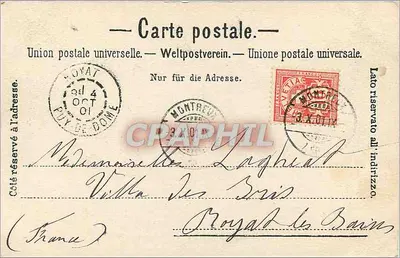 — Carte postale. —
Union postale universelle. — Weltpostverein. — Unione postale universale.
Nur für die Adresse.
Côté réservé à l'adresse.
Lato riservato all' indirizzo.
ROYAT
4
OCT
01
PUY-DE-DOME
MONTREUX
3.X.01
HELVETIA
MONTREUX
3.X.01
CPAPHIL
Mesdemoiselles
Villa des
Royat les Bains
(France)